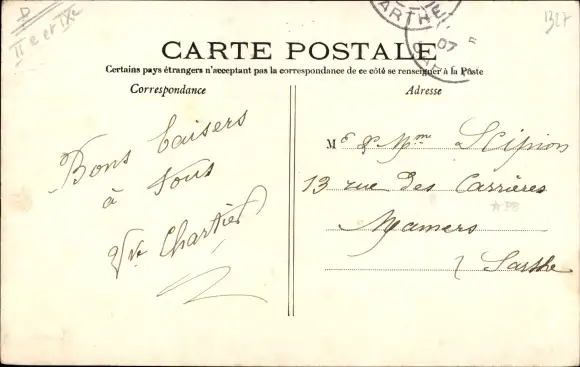 D
II e et IXe
1327
ARTHE
07
CARTE POSTALE
Certains pays étrangers n'acceptant pas la correspondance de ce côté se renseigner à la Poste
Correspondance
Adresse
Bons baisers
à tous
Vve Chartier
M r & Mme Scipion
13 rue des Carrières
Mamers
Sarthe